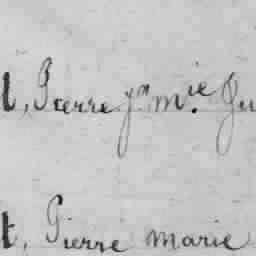 l, Pierre Jn mie. Ju
t, Pierre marie